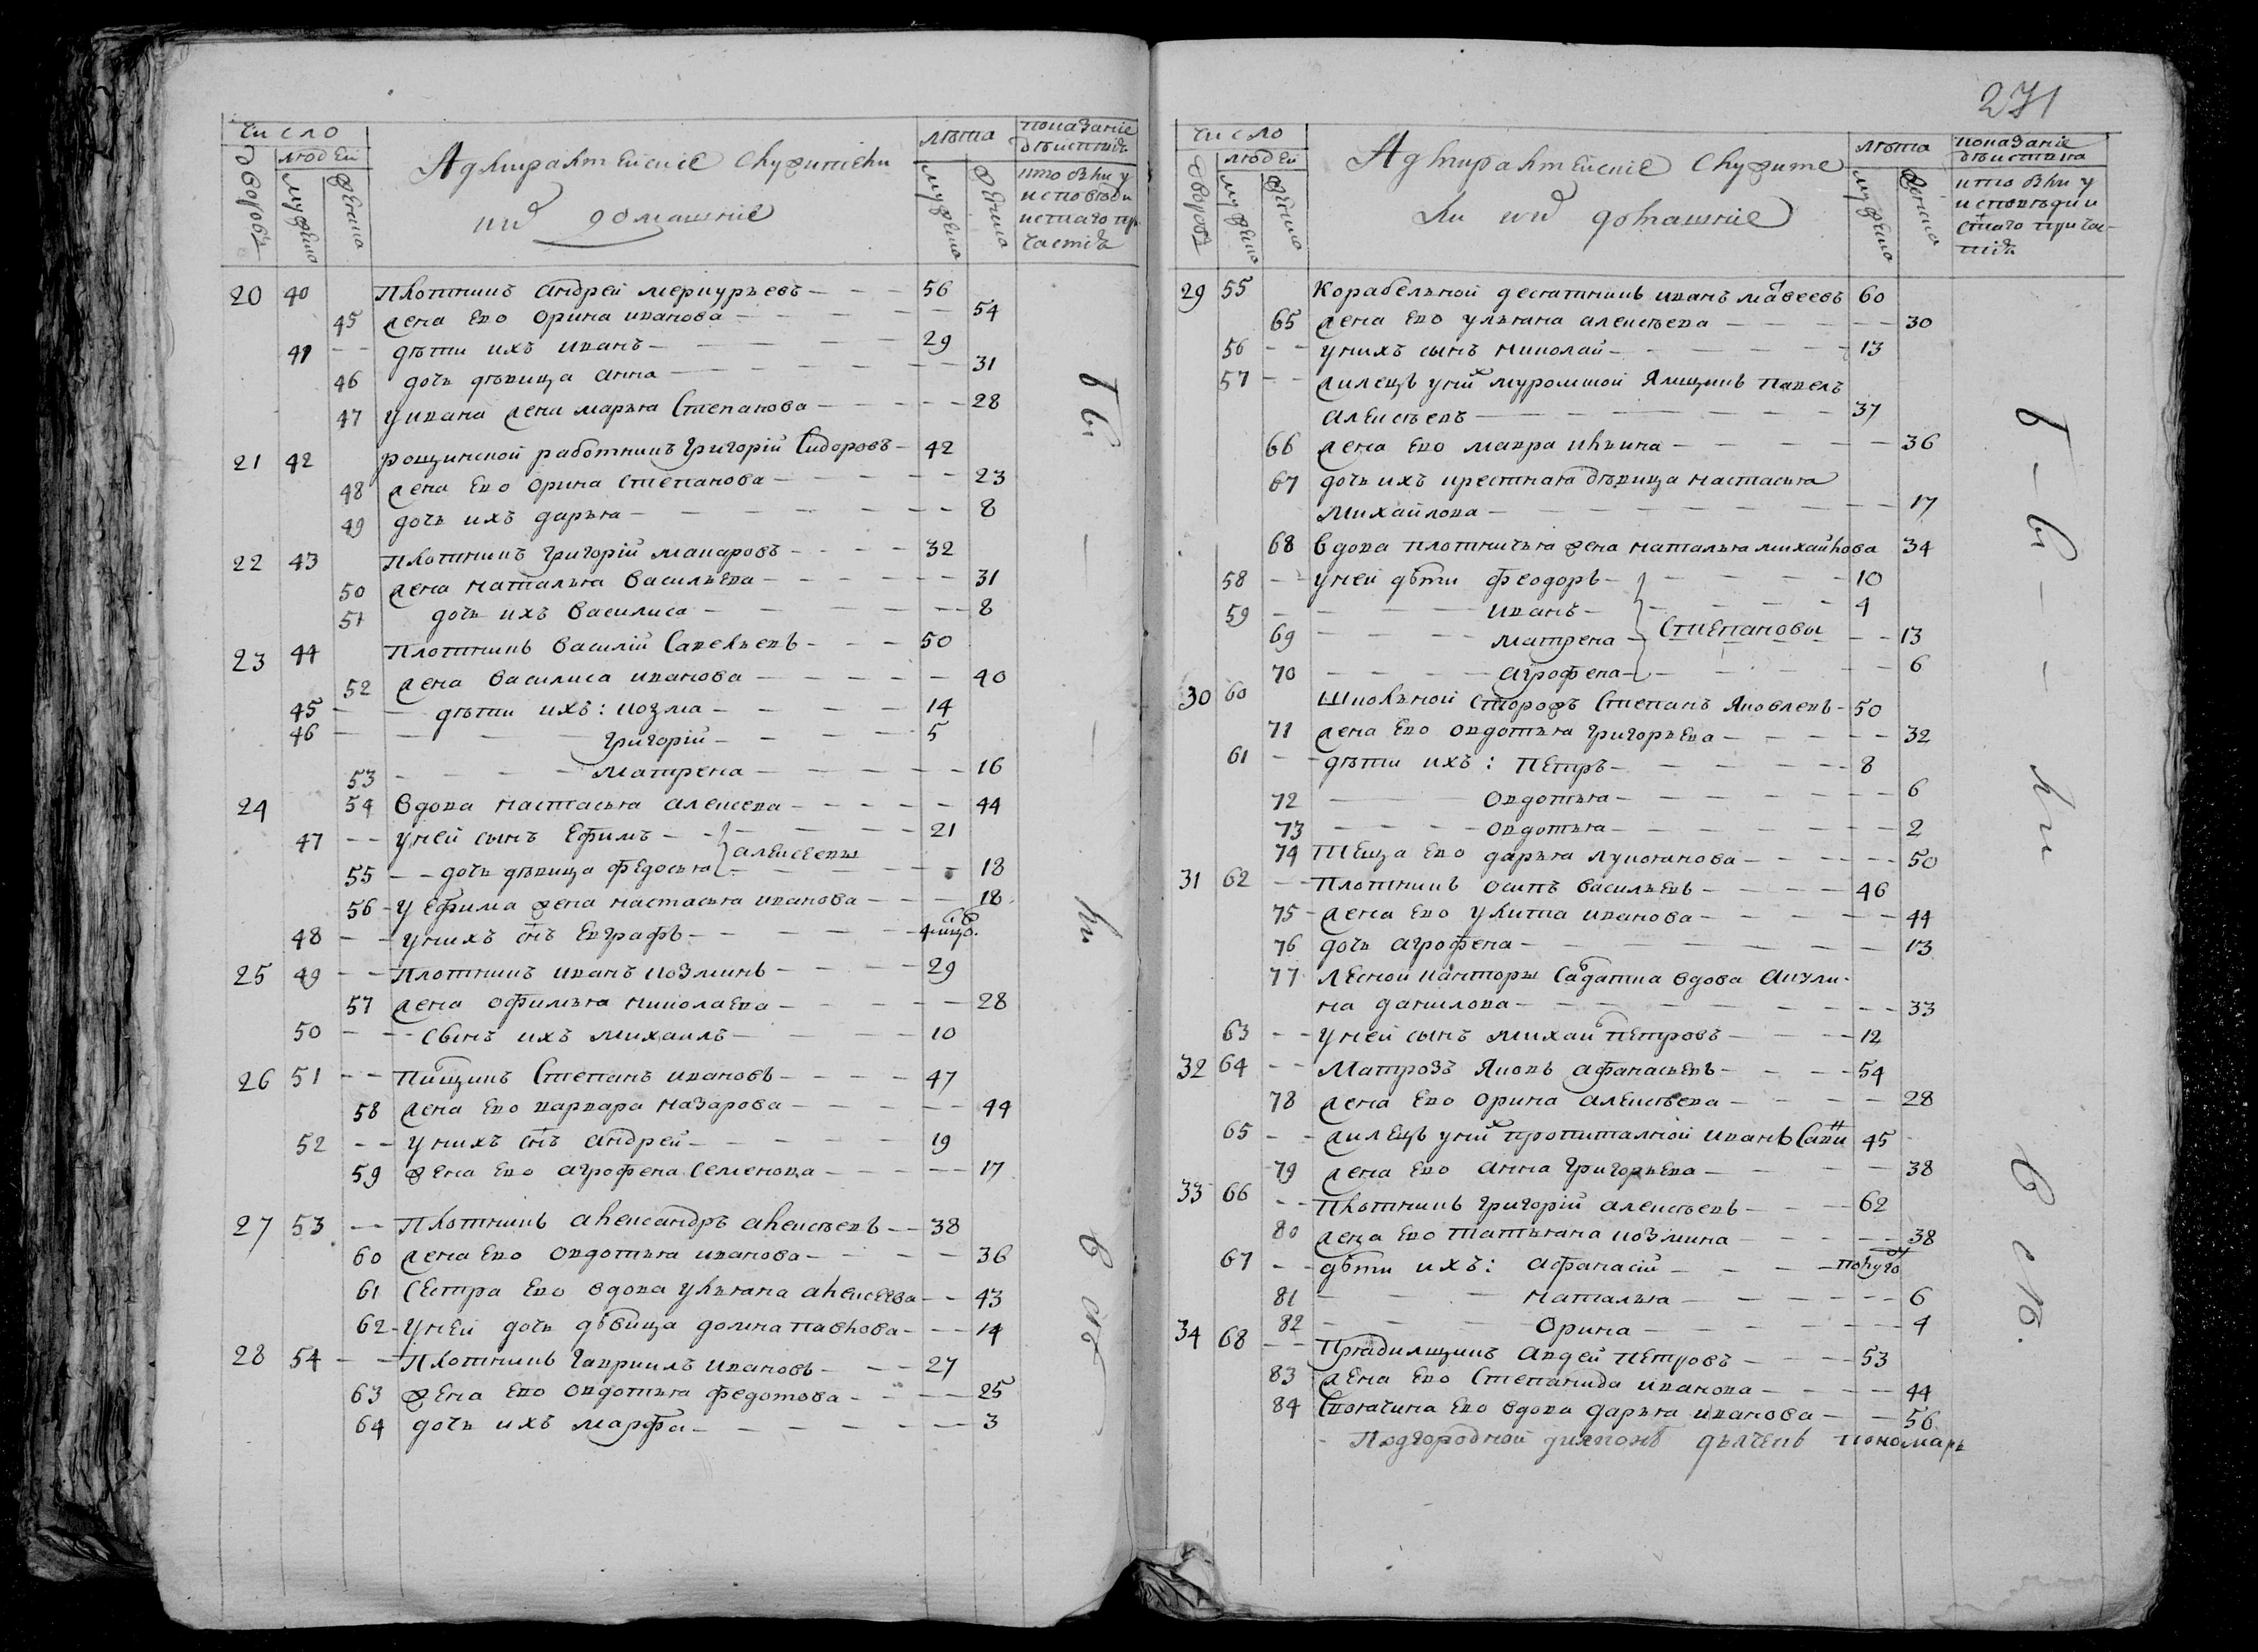 число
людей
дворовъ
мужеска
женска
Адмиралтейские служители
ихъ домашние
лѣта
мужеска
женска
показаніе
дѣйствія
кто были у
исповѣди
и стаго при
частія
20 40 Плотникъ Андрей Меркурьевъ 56
45 жена Ево Орина иванова 54
41 дѣти ихъ иванъ 29
46 дочь дѣвица анна 31
47 у ивана жена марья Степанова 28
21 42 рощинской работникъ Григорій Сидоровъ 42
48 жена Ево Орина степанова 23
49 дочь ихъ дарья 8
22 43 Плотникъ Григорій макаровъ 32
50 жена наталья васильева 31
51 дочь ихъ василиса 8
23 44 Плотникъ василій Савельевъ 50
52 жена василиса иванова 40
45 дѣти ихъ: козма 14
46 Григорій 5
53 матрена 16
24 54 вдова настасья алексеева 44
47 у ней сынъ Ефимъ 21
алексеевы
55 дочь дѣвица федосья 18
56 у Ефима жена настасья иванова 18
48 у нихъ снъ Евграфъ 4
25 49 Плотникъ иванъ козминъ 29
57 жена офимья николаева 28
50 сынъ ихъ михаилъ 10
26 51 Пищикъ Степанъ ивановъ 47
58 жена Ево варвара назарова 44
52 у нихъ снъ андрей 19
59 жена Ево агрофена Семенова 17
27 53 Плотникъ александръ алексѣевъ 38
60 жена Ево овдотья иванова 36
61 Сестра Ево вдова ульяна алексеева 43
62 у ней дочь дѣвица домна павлова 14
28 54 Плотникъ Гавриилъ ивановъ 27
63 жена Ево овдотья федотова 25
64 дочь ихъ марфа 3
всѣ
были
271
число
людей
дворовъ
мужеска
женска
Адмиралтейские служите
ли ихъ домашние
лѣта
мужеска
женска
показаніе
дѣйства
кто были у
исповѣди и
стаго прича-
тія
29 55 Корабельной десятникъ иванъ матвеевъ 60
65 жена Ево ульяна алексѣева 30
56 у нихъ сынъ николай 13
57 жилецъ у них муромской Ямщикъ павелъ
алексѣевъ 37
66 жена Ево мавра ильина 36
67 дочь ихъ крестная дѣвица настасья
михайлова 17
68 вдова плотничья жена наталья михайлова 34
58 у ней дѣти феодоръ 10
59 иванъ 4
Степановы
69 матрена 13
70 агрофена 6
30 60 Школьной сторожъ степанъ Яковлевъ 50
71 жена Ево овдотья григорьева 32
61 дѣти ихъ: Петръ 8
72 овдотья 6
73 овдотья 2
74 Теща Ево дарья лукоянова 50
31 62 Плотникъ осипъ васильевъ 46
75 жена Ево улита иванова 44
76 дочь агрофена 13
77 лесной канторы Садатка вдова акули-
на данилова 33
63 у ней сынъ михаил петровъ 12
32 64 Матрозъ Яковъ афанасьевъ 54
78 жена Ево орина алексѣева 28
65 жилецъ у них пропиталной иванъ Савин 45
79 жена Ево анна Григорьева 38
33 66 Плотникъ григорій алексѣевъ 62
80 жена Ево татьяна козмина 38
67 дѣти ихъ: афанасій полуго
81 наталья 6
82 орина 4
34 68 Прядилщикъ авдей петровъ 53
83 жена Ево степанида иванова 44
84 Своячина Ево вдова дарья иванова 56
Подгородной диаконъ дьячекъ пономарь
всѣ